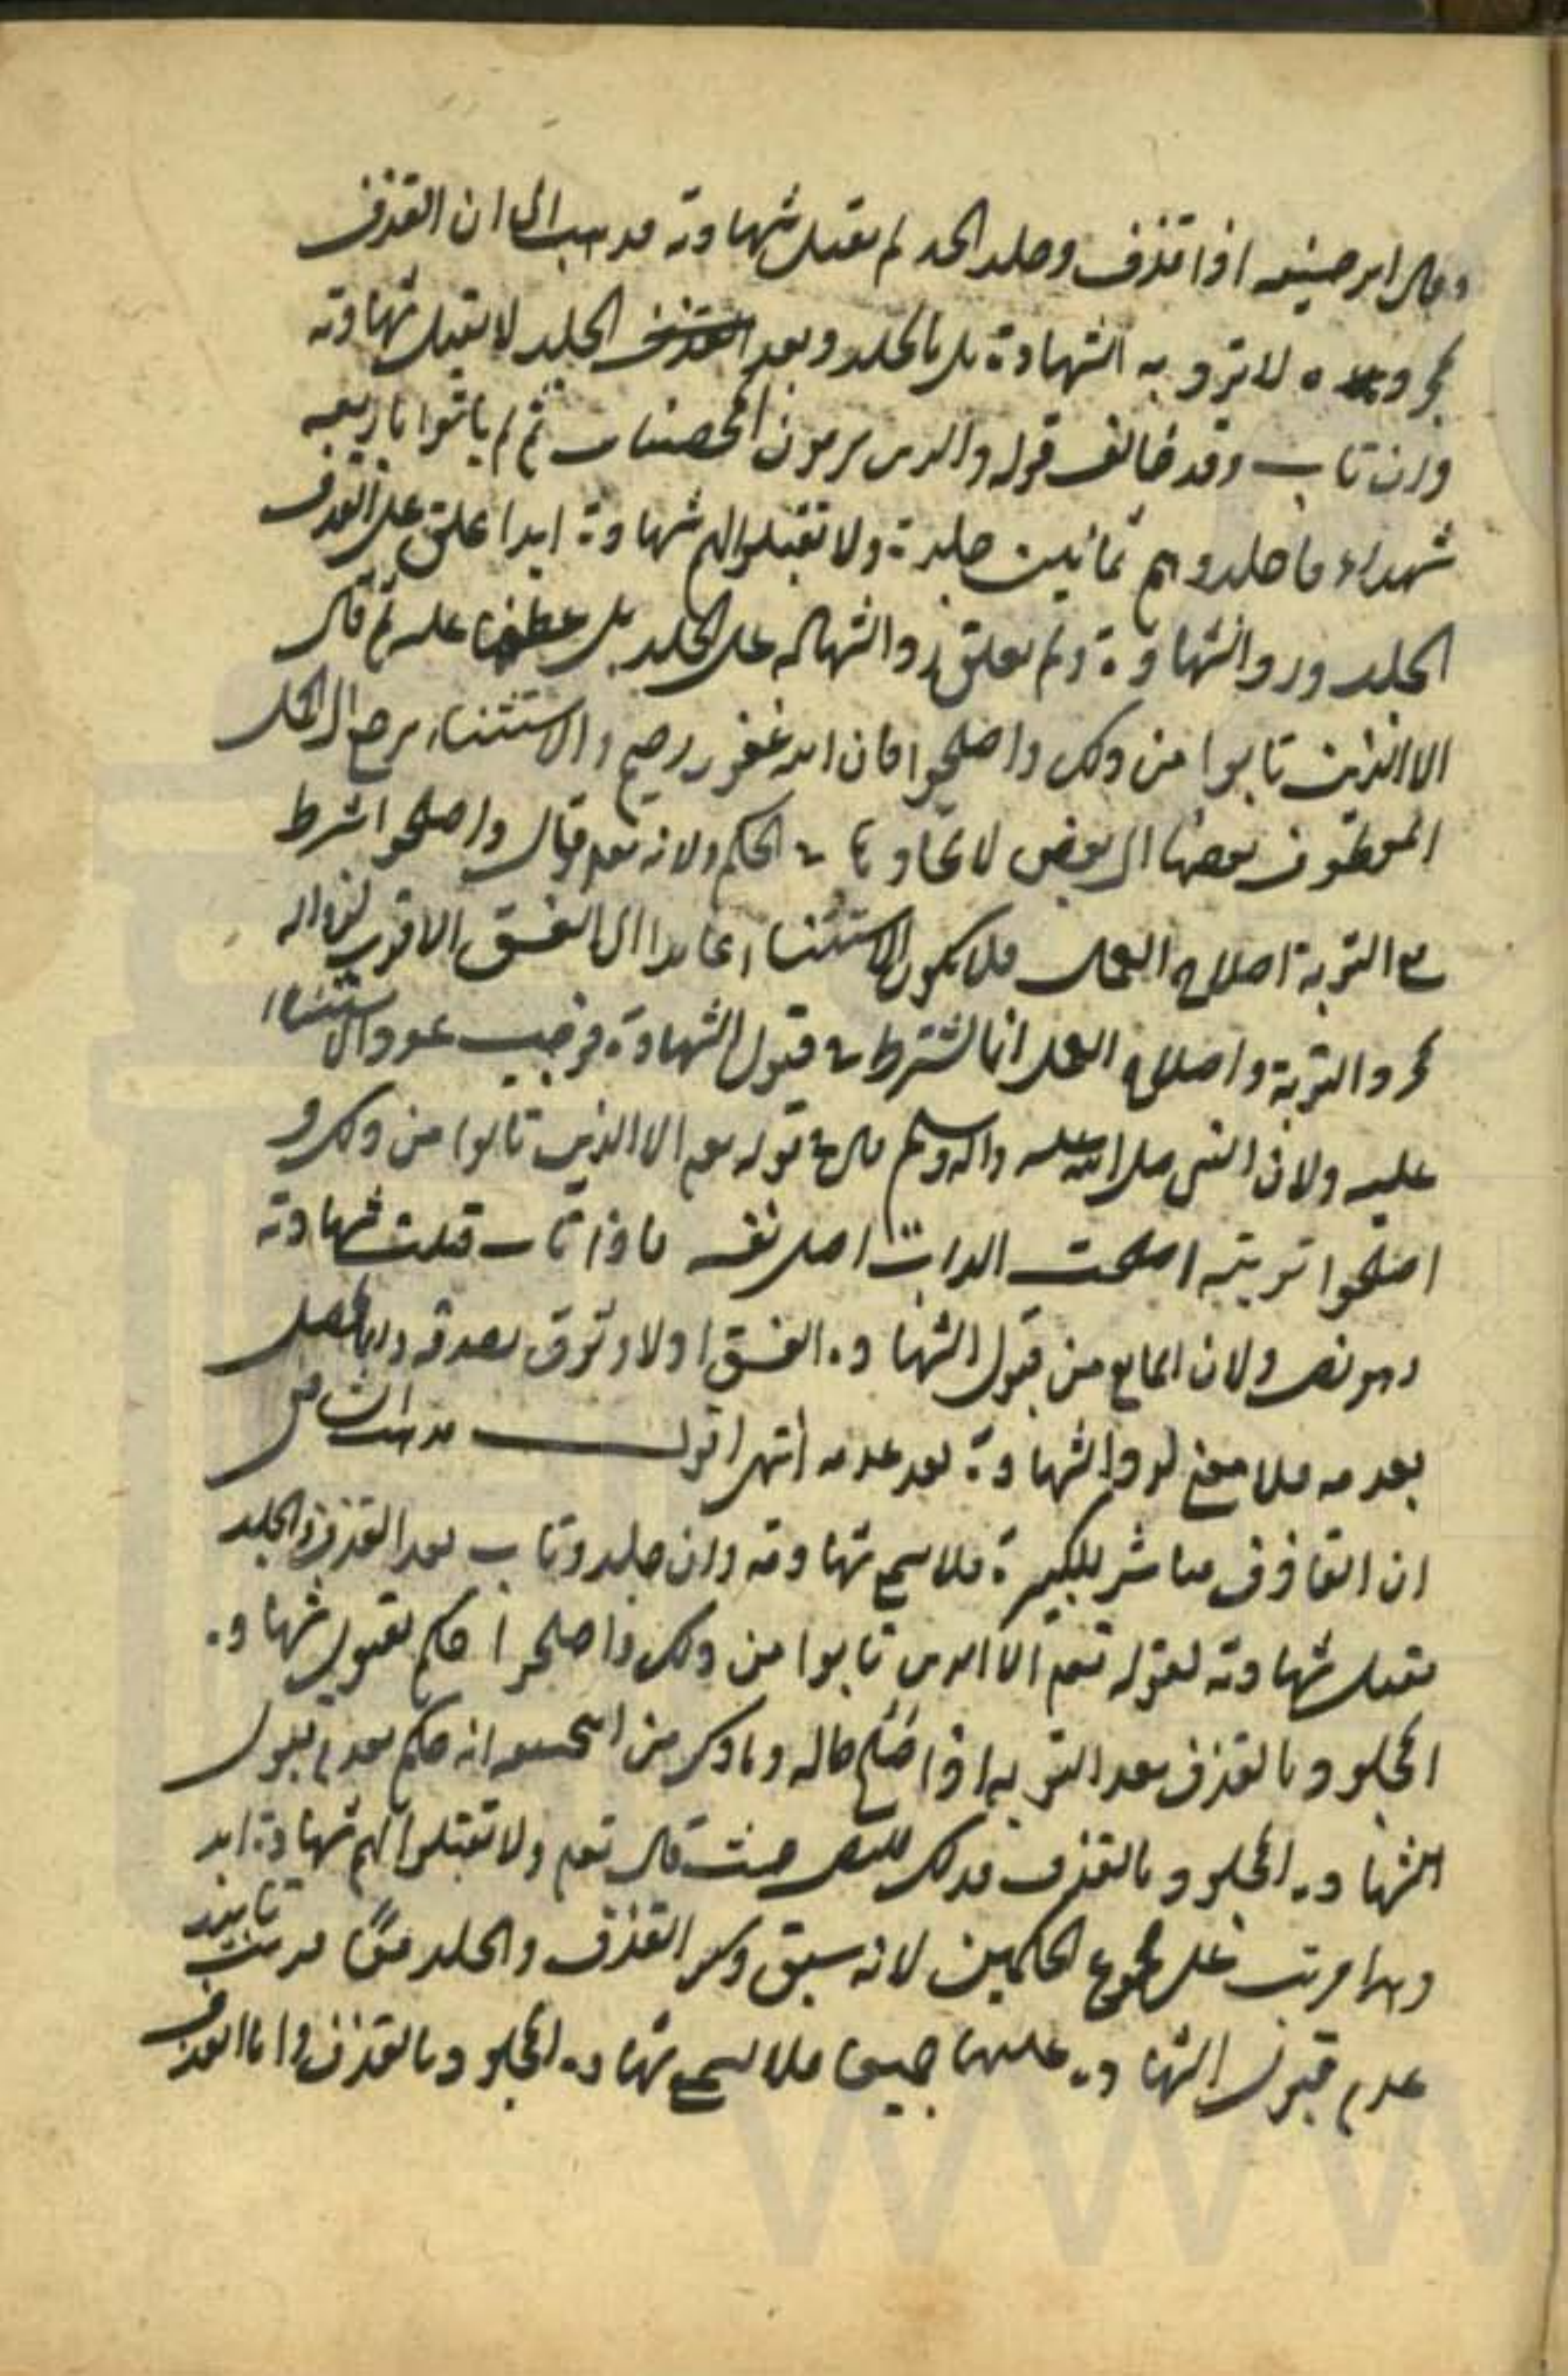 وقال ابو حنيفه اذا قذف وجلد الحد لم يقبل شهادته فذهب الى ان القذف
بمجرده لا ترد به الشهادة بل بالجلد وبعد الجلد لا تقبل شهادته
وان تاب وقد خالف قوله والذين يرمون المحصنات ثم لم ياتوا باربعه
شهداء فاجلدوهم ثمانين جلدة ولا تقبلوا لهم شهادة ابدا علق على القذف
الجلد ورد الشهادة ولم يعلق رد الشهاده على الجلد بل عطفها عليه ثم قال
الا الذين تابوا من ذلك واصلحوا فان الله غفور رحيم والاستثناء يرجع الى الجمل
المعطوف بعضها الى بعض لاتحادها في الحكم ولانه تعم قال واصلحوا شرط
مع التوبة اصلاح العمل فلا يكون الاستثناء عايدا الى الفسق الا قرب لزواله
بمجرد التوبة واصلاح العمل انما اشترط في قبول الشهادة فوجب عود الاستثناء
عليه ولان النبي صلى الله عليه واله وسلم قال في قوله تعم الا الذين تابوا من ذلك و
اصلحوا توبته اصلحت الذات اصل نفسه فاذا تاب قبلت شهادته
وهو نص ولان المانع من قبول الشهاده الفسق اولا وثوق بصدقه وانما يحصل
بعدمه فلا معنى لرد الشهادة بعد عدمه انتهى اقول مذهب الشافعي
ان القاذف مباشر للكبيرة فلا يسمع شهادته وان جلد وتاب بعد القذف والجلد
يقبل شهادته لقوله تعم الا الذين تابوا من ذلك واصلحوا حكم بقبول شهاده
المجلود بالقذف بعد التوبه اذا صلح حاله وما ذكر من ابي حنيفه انه حكم بعدم قبول
الشهاده المجلود بالقذف فذلك للنص حيث قال تعم ولا تقبلوا لهم شهادة ابد
وهذا مرتب على مجموع الحكمين لانه سبق ذكر القذف والجلد معًا فرتب تابيد
عدم قبول الشهاده عليهما جميعا فلا يسمع شهاده المجلود بالقذف واما القذف